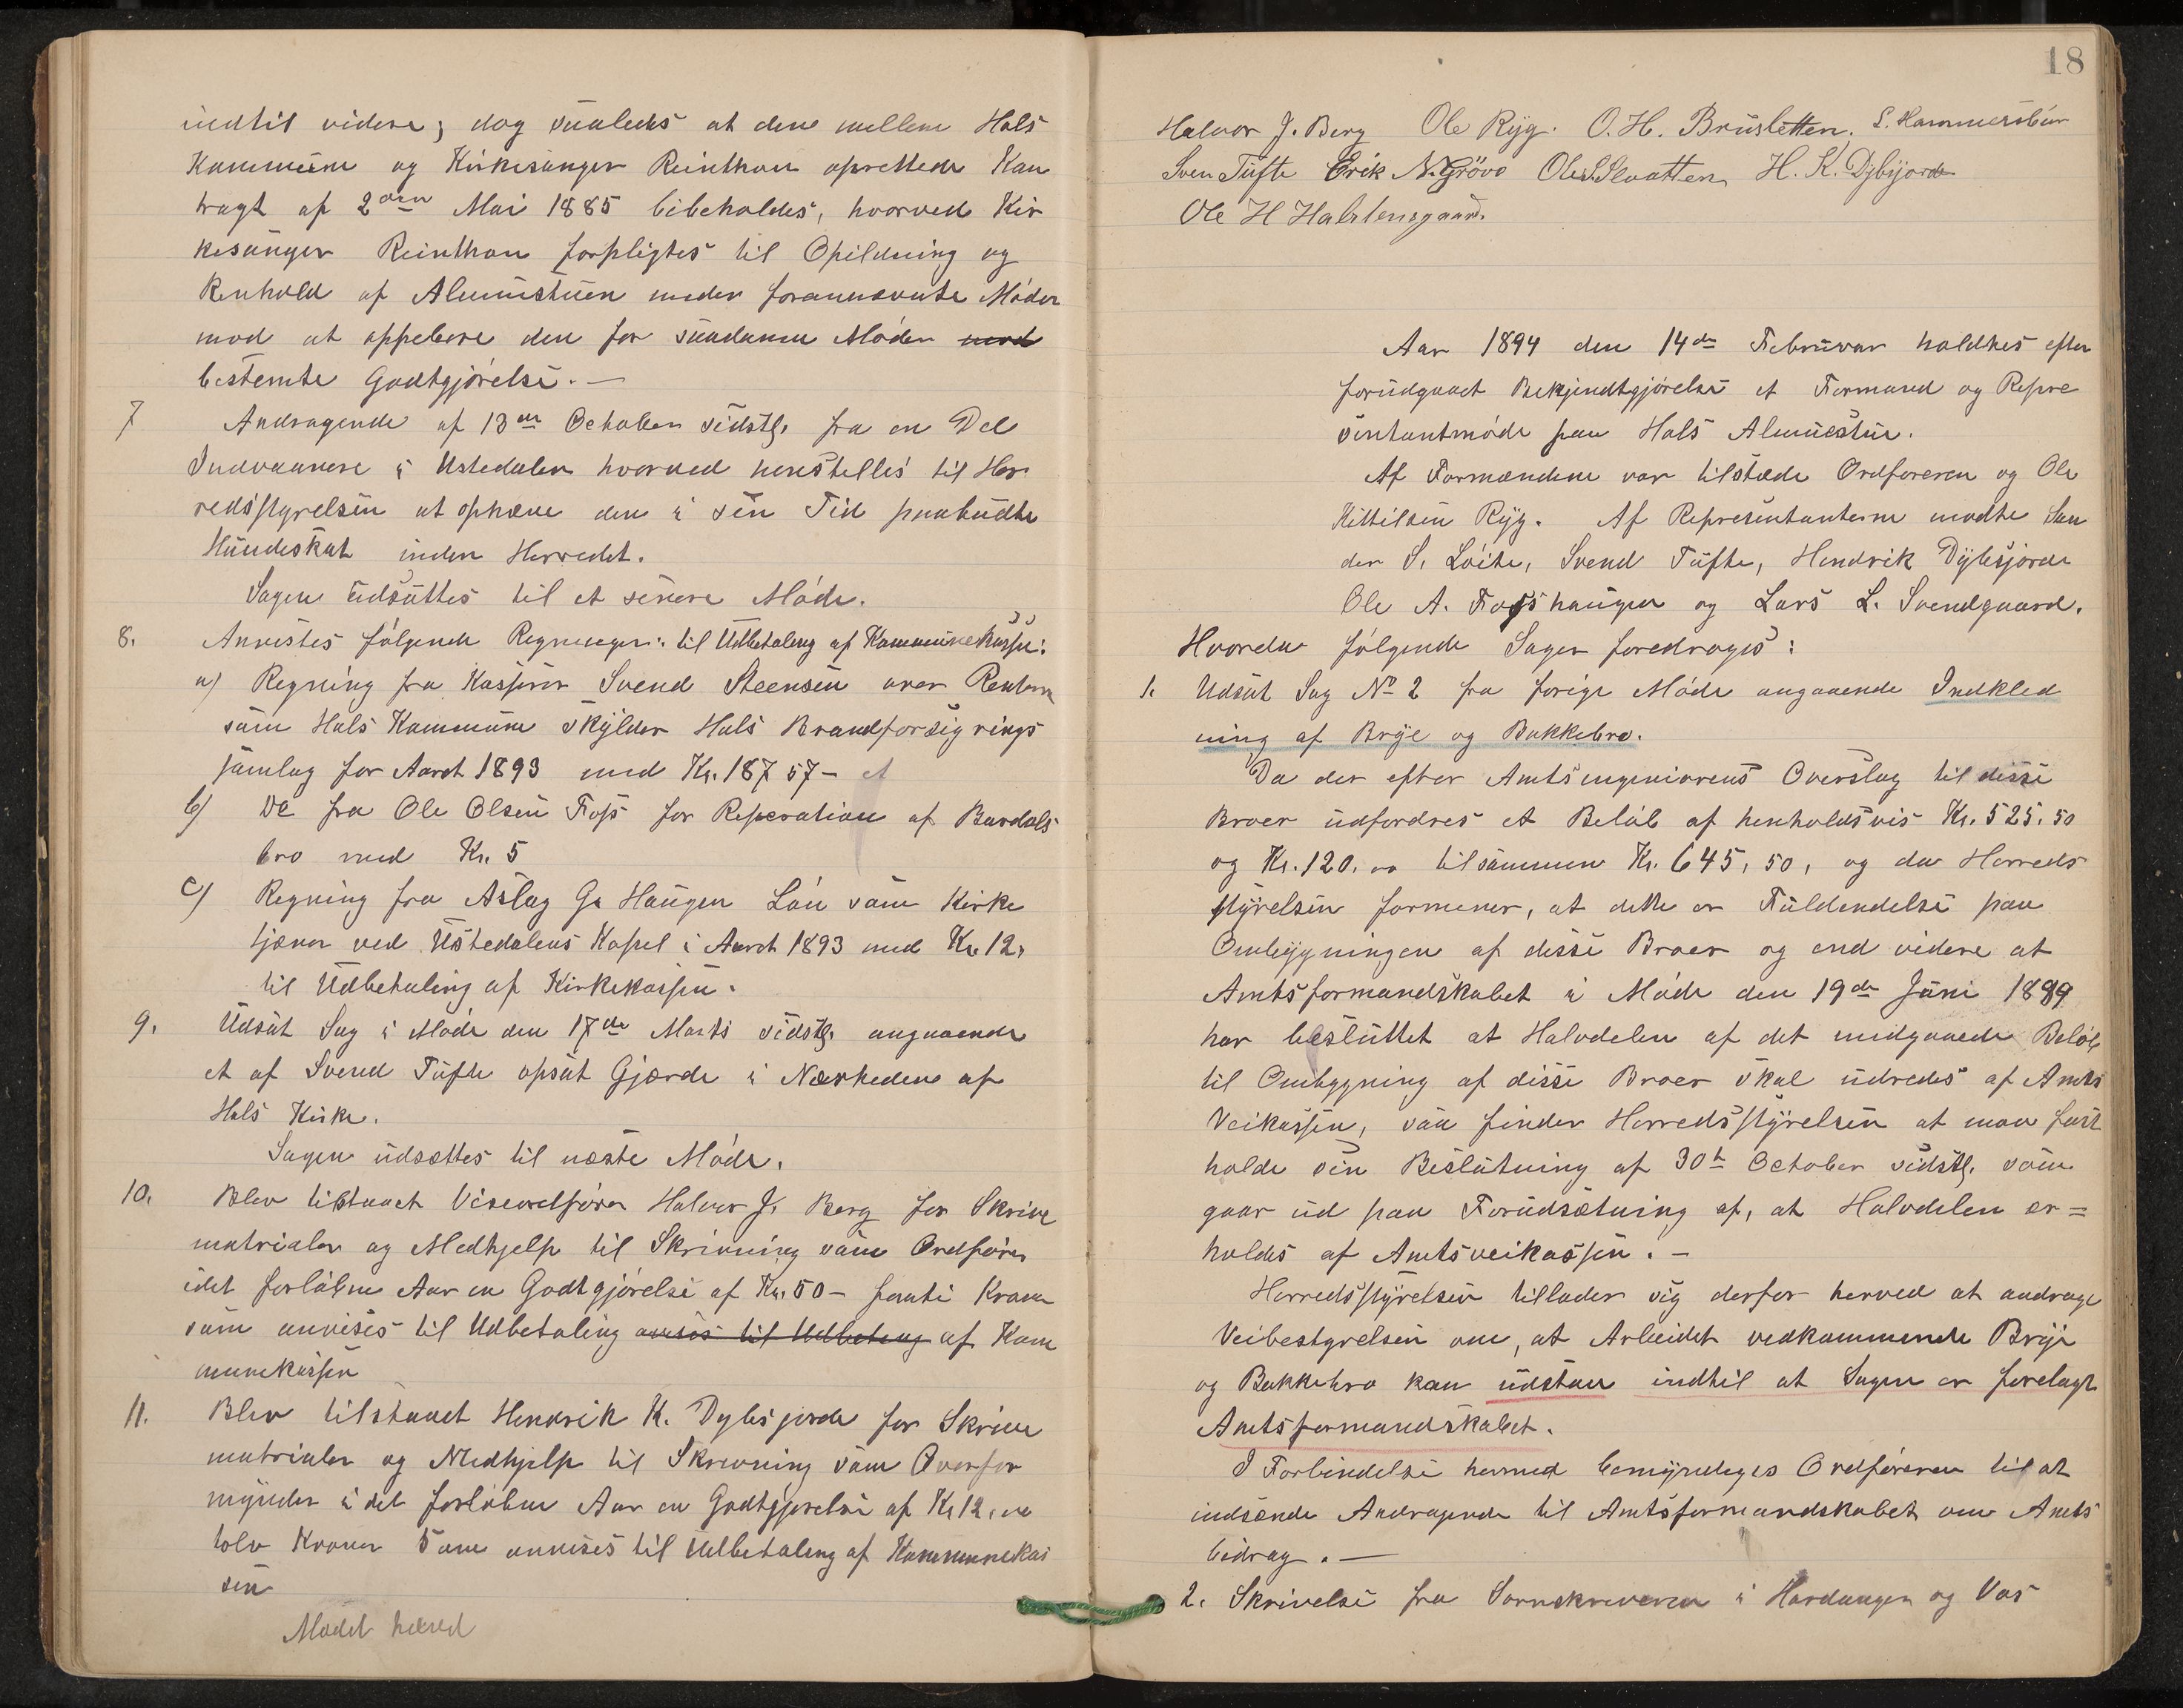 indtil videre; dog saaledes at den mellem Hols
Kommune og Kirkesanger Reinthon oprettede Kon
tragt af 2den Mai 1885 bibeholdes, hvorved Kir
kesanger Reinthon forpligtes til Opildning og
Renhold af Almustuen under forannævnte Møder
mod at oppebere den for saadanne Møder mod
bestemte Godtgjørelse. —
7 Andragende af 13de October sidstl. fra en Del
Indvaanere i Ustedalen hvorved henstelles til Her
redsstyrelsen at ophæve den i sin Tid paabudte
Hundeskat inden Herredet.
Sagen udsættes til et senere Møde.
8. Anvistes følgende Regninger: til Udbetaling af Kommunekassen:
a) Regning fra Kasserer Svend Steensen over Renterne
som Hols Kommune skylder Hols Brandforsigrings
samlag for Aaret 1893 med Kr. 187 57 - et
b) Do fra Ole Olsen Foss for Reperation af Bardøls
bro med Kr. 5
c) Regning fra Aslag G. Haugen Løn som Kirke
tjener ved Ustedalens Kapel i Aaret 1893 med Kr. 12,
til Udbetaling af Kirkekassen.
9. Udsat Sag i Møde den 17de Marts sidstl. angaaende
et af Svend Tufte opsat Gjærde i Nærheden af
Hols Kirke.
Sagen udsættes til næste Møde.
10. Blev tilstaaet Viseordfører Halvor J. Berg for Skrive
matrialer og Medhjelp til Skrivning som Ordfører
idet forløbne Aar en Godtgjørelse af Kr. 50 - femti Kroner
som anvises til Udbetaling anvises til Udbetaling af Kom
munekassen
11. Blev tilstaaet Hendrik K. Dybsjorde for Skrive
matrialer og Medhjelp til Skrivning som Overfor
mynder i det forløbne Aar en Godtgjørelse af Kr. 12, oo
tolv Kroner som anvises til Udbetaling af Kommunekas
sen
Mødet hævet
18
Halvor J. Berg Ole Ryg. O. H. Brusletten. S. Hammersbøn
Sven Tufte Erik N. Grövo Ole S. Slaatten H. K. Dybsjorde
Ole H Hallensgaard.
Aar 1894 den 14de Februar holdtes efter
forudgaaet Bekjendtgjørelse et Formand og Repre
sentantmøde paa Hols Almuestue.
Af Formændene var tilstæde Ordføreren og Ole
Kittilsen Ryg. Af Representanterne mødte San
der S. Løite, Svend Tufte, Hendrik Dybsjorde
Ole A. Fosshaugen og Lars L. Svendgaard.
Hvorda følgende Sager foredroges:
1. Udsat Sag No 2 fra forige Møde angaaende Indkled
ning af Brye og Bakkebro.
Da der efter Amtsingeniørens Overslag til disse
Broer udfordres et Beløb af henholdsvis Kr. 525,50
og Kr. 120, oo tilsammen Kr. 645,50, og da Herreds
styrelsen formener, at dette er Fuldendelse paa
Ombygningen af disse Broer og end videre at
Amtsformandskabet i Møde den 19de Juni 1889
har besluttet at Halvdelen af det medgaaede Beløb
til Ombygning af disse Broer skal udredes af Amts
Veikassen, saa finder Herredsstyrelsen at maa fast
holde sin Beslutning af 30te October sidstl. som
gaar ud paa Forudsætning af, at Halvdelen er=
holdes af Amtsveikassen. —
Herredsstyrelsen tillader sig derfor herved at andrage
Veibestyrelsen om, at Arbeidet vedkommende Brye
og Bakkebro kan udstaa indtil at Sagen er forelagt
Amtsformandskabet.
I Forbindelse hermed bemyndiges Ordføreren til at
indsende Andragende til Amtsformandskabet om Amts
bidrag. —
2. Skrivelse fra Sorenskriveren i Hardanger og Vos